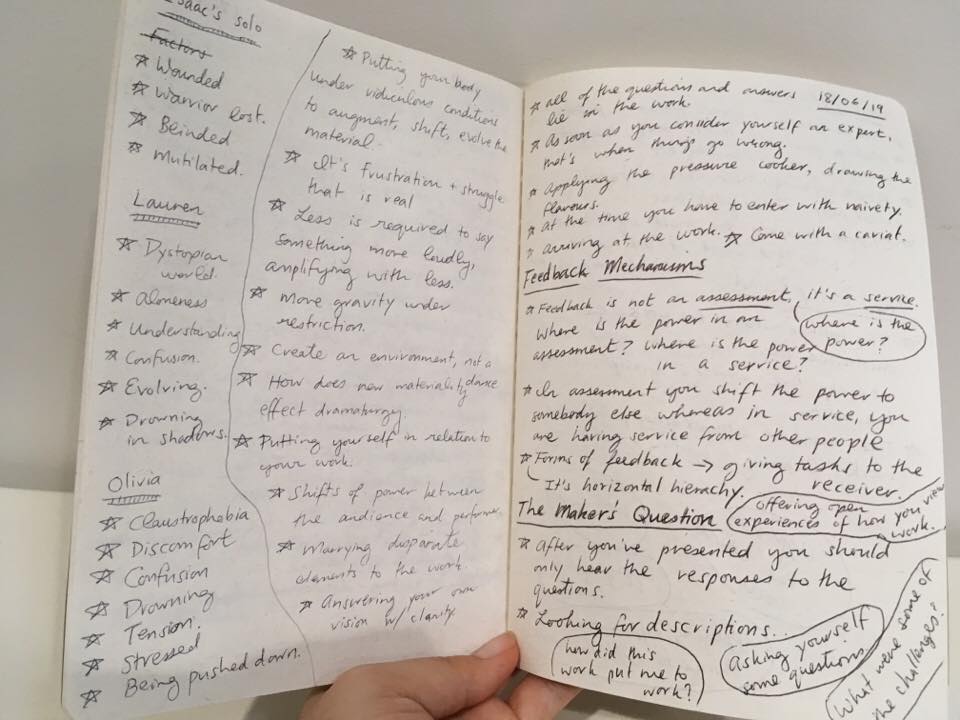 Isaac's solo
Factors
☆ Wounded
☆ Warrior lost.
☆ Blinded
☆ Mutilated.
Lauren
☆ Dystopian
world.
☆ Aloneness
☆ Understanding
☆ Confusion.
☆ Evolving.
☆ Drowning
in shadows.
Olivia
☆ Claustrophobia
☆ Discomfort
☆ Confusion
☆ Drowning
☆ Tension.
☆ Stressed
☆ Being pushed down.
☆ Putting your body
under ridiculous conditions
to augment, shift, evolve the
material.
☆ It's frustration + struggle
that is real
☆ Less is required to say
something more loudly,
amplifying with less.
☆ More gravity under
restriction.
☆ Create an environment, not a
dance
☆ How does new materiality
effect dramaturgy
☆ Putting yourself in relation to
your work.
☆ Shifts of power between
the audience and performer
☆ Marrying disparate
elements to the work
☆ Answering your own
vision w/ clarity
18/06/19
☆ all of the questions and answers
lie in the work.
☆ As soon as you consider yourself an expert,
that's when things go wrong.
☆ Applying the pressure cooker, drawing the
flavours.
☆ at the time you have to enter with naivety.
☆ arriving at the work. ☆ Come with a caviat.
Feedback Mechanisms
☆ Feedback is not an assessment, it's a service.
where is the power in an
assessment? where is the power
in a service?
where is the
power?
☆ In assessment you shift the power to
somebody else whereas in service, you
are having service from other people
☆ Forms of feedback → giving tasks to the
receiver.
It's horizontal hierachy.
offering open
experiences of how you view
work.
The Maker's Question
☆ After you've presented you should
only hear the responses to the
questions.
☆ Looking for descriptions...
how did this
work put me to
work?
Asking yourself
some questions
What were some of
the challenges?